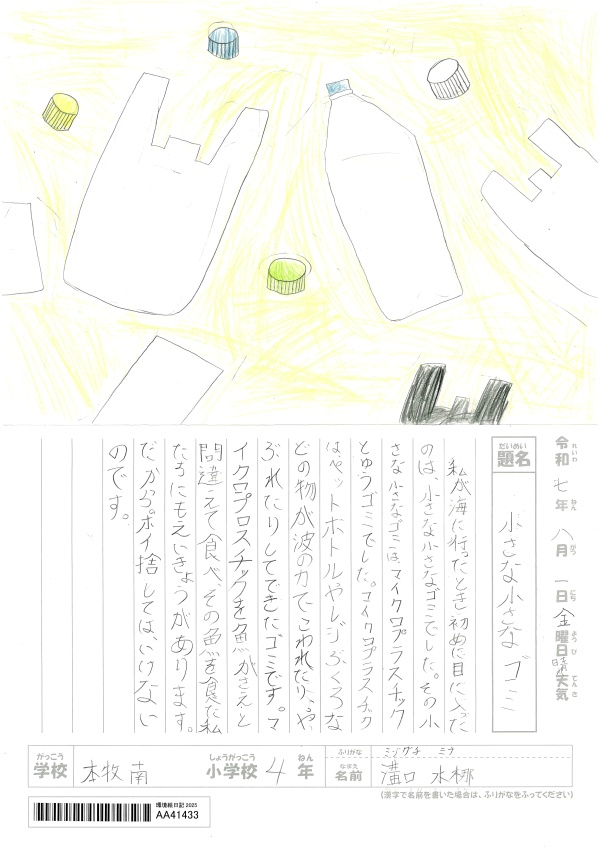 令和七年八月一日金曜日晴天気
れいわ ねん がつ にち ようび てんき
だいめい
題名 小さな小さなゴミ
私が海に行ったとき初めに目に入った
のは、小さな小さなゴミでした。その小
さな小さなゴミは、マイクロプラスチック
とゆうゴミでした。マイクロプラスチック
は、ペットボトルやレジぶくろな
どの物が波の力でこわれたり、や
ぶれたりしてできたゴミです。マ
イクロプロスチックを魚がえさと
間違えて食べ、その魚を食べた私
たちにもえいきょうがあります。
だから。ポイ捨てしては、いけない
のです。
がっこう しょうがっこう ねん
学校 本牧南 小学校 4年
ふりがな ミゾグチ ミナ
なまえ
名前 溝口 水梛
(漢字で名前を書いた場合は、ふりがなをふってください)
環境絵日記 2025
AA41433